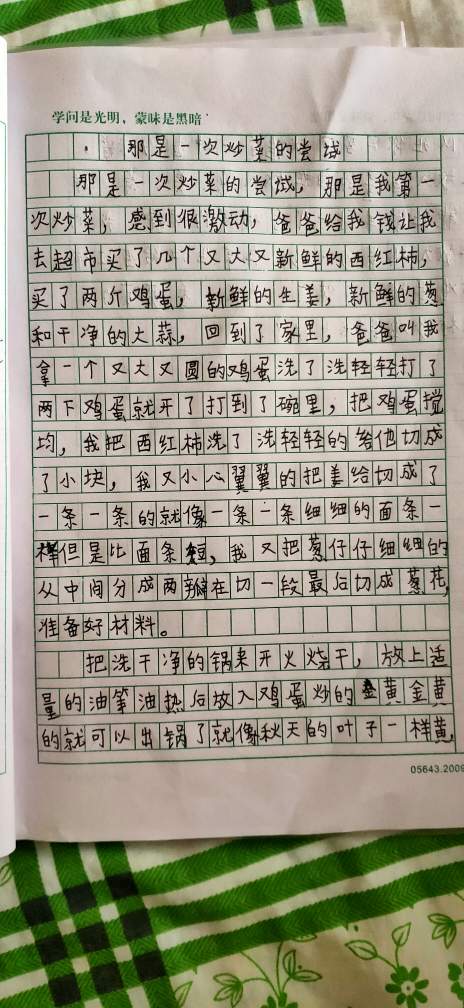 学问是光明，蒙昧是黑暗
那是一次炒菜的尝试
那是一次炒菜的尝试，那是我第一
次炒菜，感到很激动，爸爸给我钱让我
去超市买了几个又大又新鲜的西红柿，
买了两斤鸡蛋，新鲜的生姜，新鲜的葱
和干净的大蒜，回到了家里，爸爸叫我
拿一个又大又圆的鸡蛋洗了洗轻轻打了
两下鸡蛋就开了打到了碗里，把鸡蛋搅
均，我把西红柿洗了洗轻轻的给他切成
了小块，我又小心翼翼的把姜给切成了
一条一条的就像一条一条细细的面条一
样但是比面条短，我又把葱仔仔细细的
从中间分成两瓣在切一段最后切成葱花，
准备好材料。
把洗干净的锅来开火烧干，放上适
量的油等油热后放入鸡蛋炒的金黄金黄
的就可以出锅了就像秋天的叶子一样黄，
05643.2009